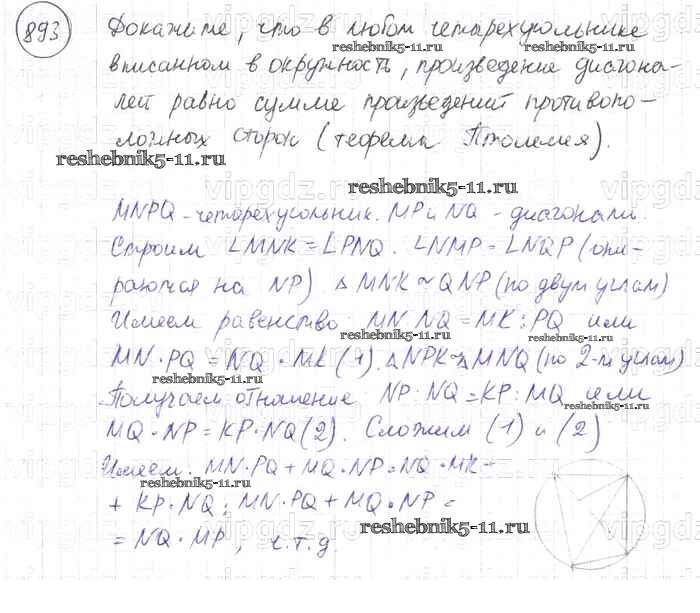 893
Докажите, что в любом четырехугольнике
reshebnik5-11.ru reshebnik5-11.ru
вписанном в окружность, произведение диагона-
лей равно сумме произведений противопо-
ложных сторон (теорема Птолемея).
reshebnik5-11.ru
reshebnik5-11.ru
MNPQ - четырехугольник. MP и NQ - диагонали.
Строим ∠MNK = ∠PNQ. ∠NMP = ∠NQP (опи-
рающая на NP) ▵ MNK ~ QNP (по двум углам)
Имеем равенство: MN:NQ = MK:PQ или
reshebnik5-11.ru reshebnik5-11.ru
MN · PQ = NQ · MK (1). ▵ NPK ~ ▵ MNQ (по 2-м углам)
reshebnik5-11.ru
Получаем отношение NP:NQ = KP:MQ или
reshebnik5-11.ru
MQ · NP = KP · NQ (2). Сложим (1) и (2)
Имеем: MN · PQ + MQ · NP = NQ · MK +
reshebnik5-11.ru
+ KP · NQ; MN · PQ + MQ · NP =
reshebnik5-11.ru
= NQ · MP, ч.т.д.